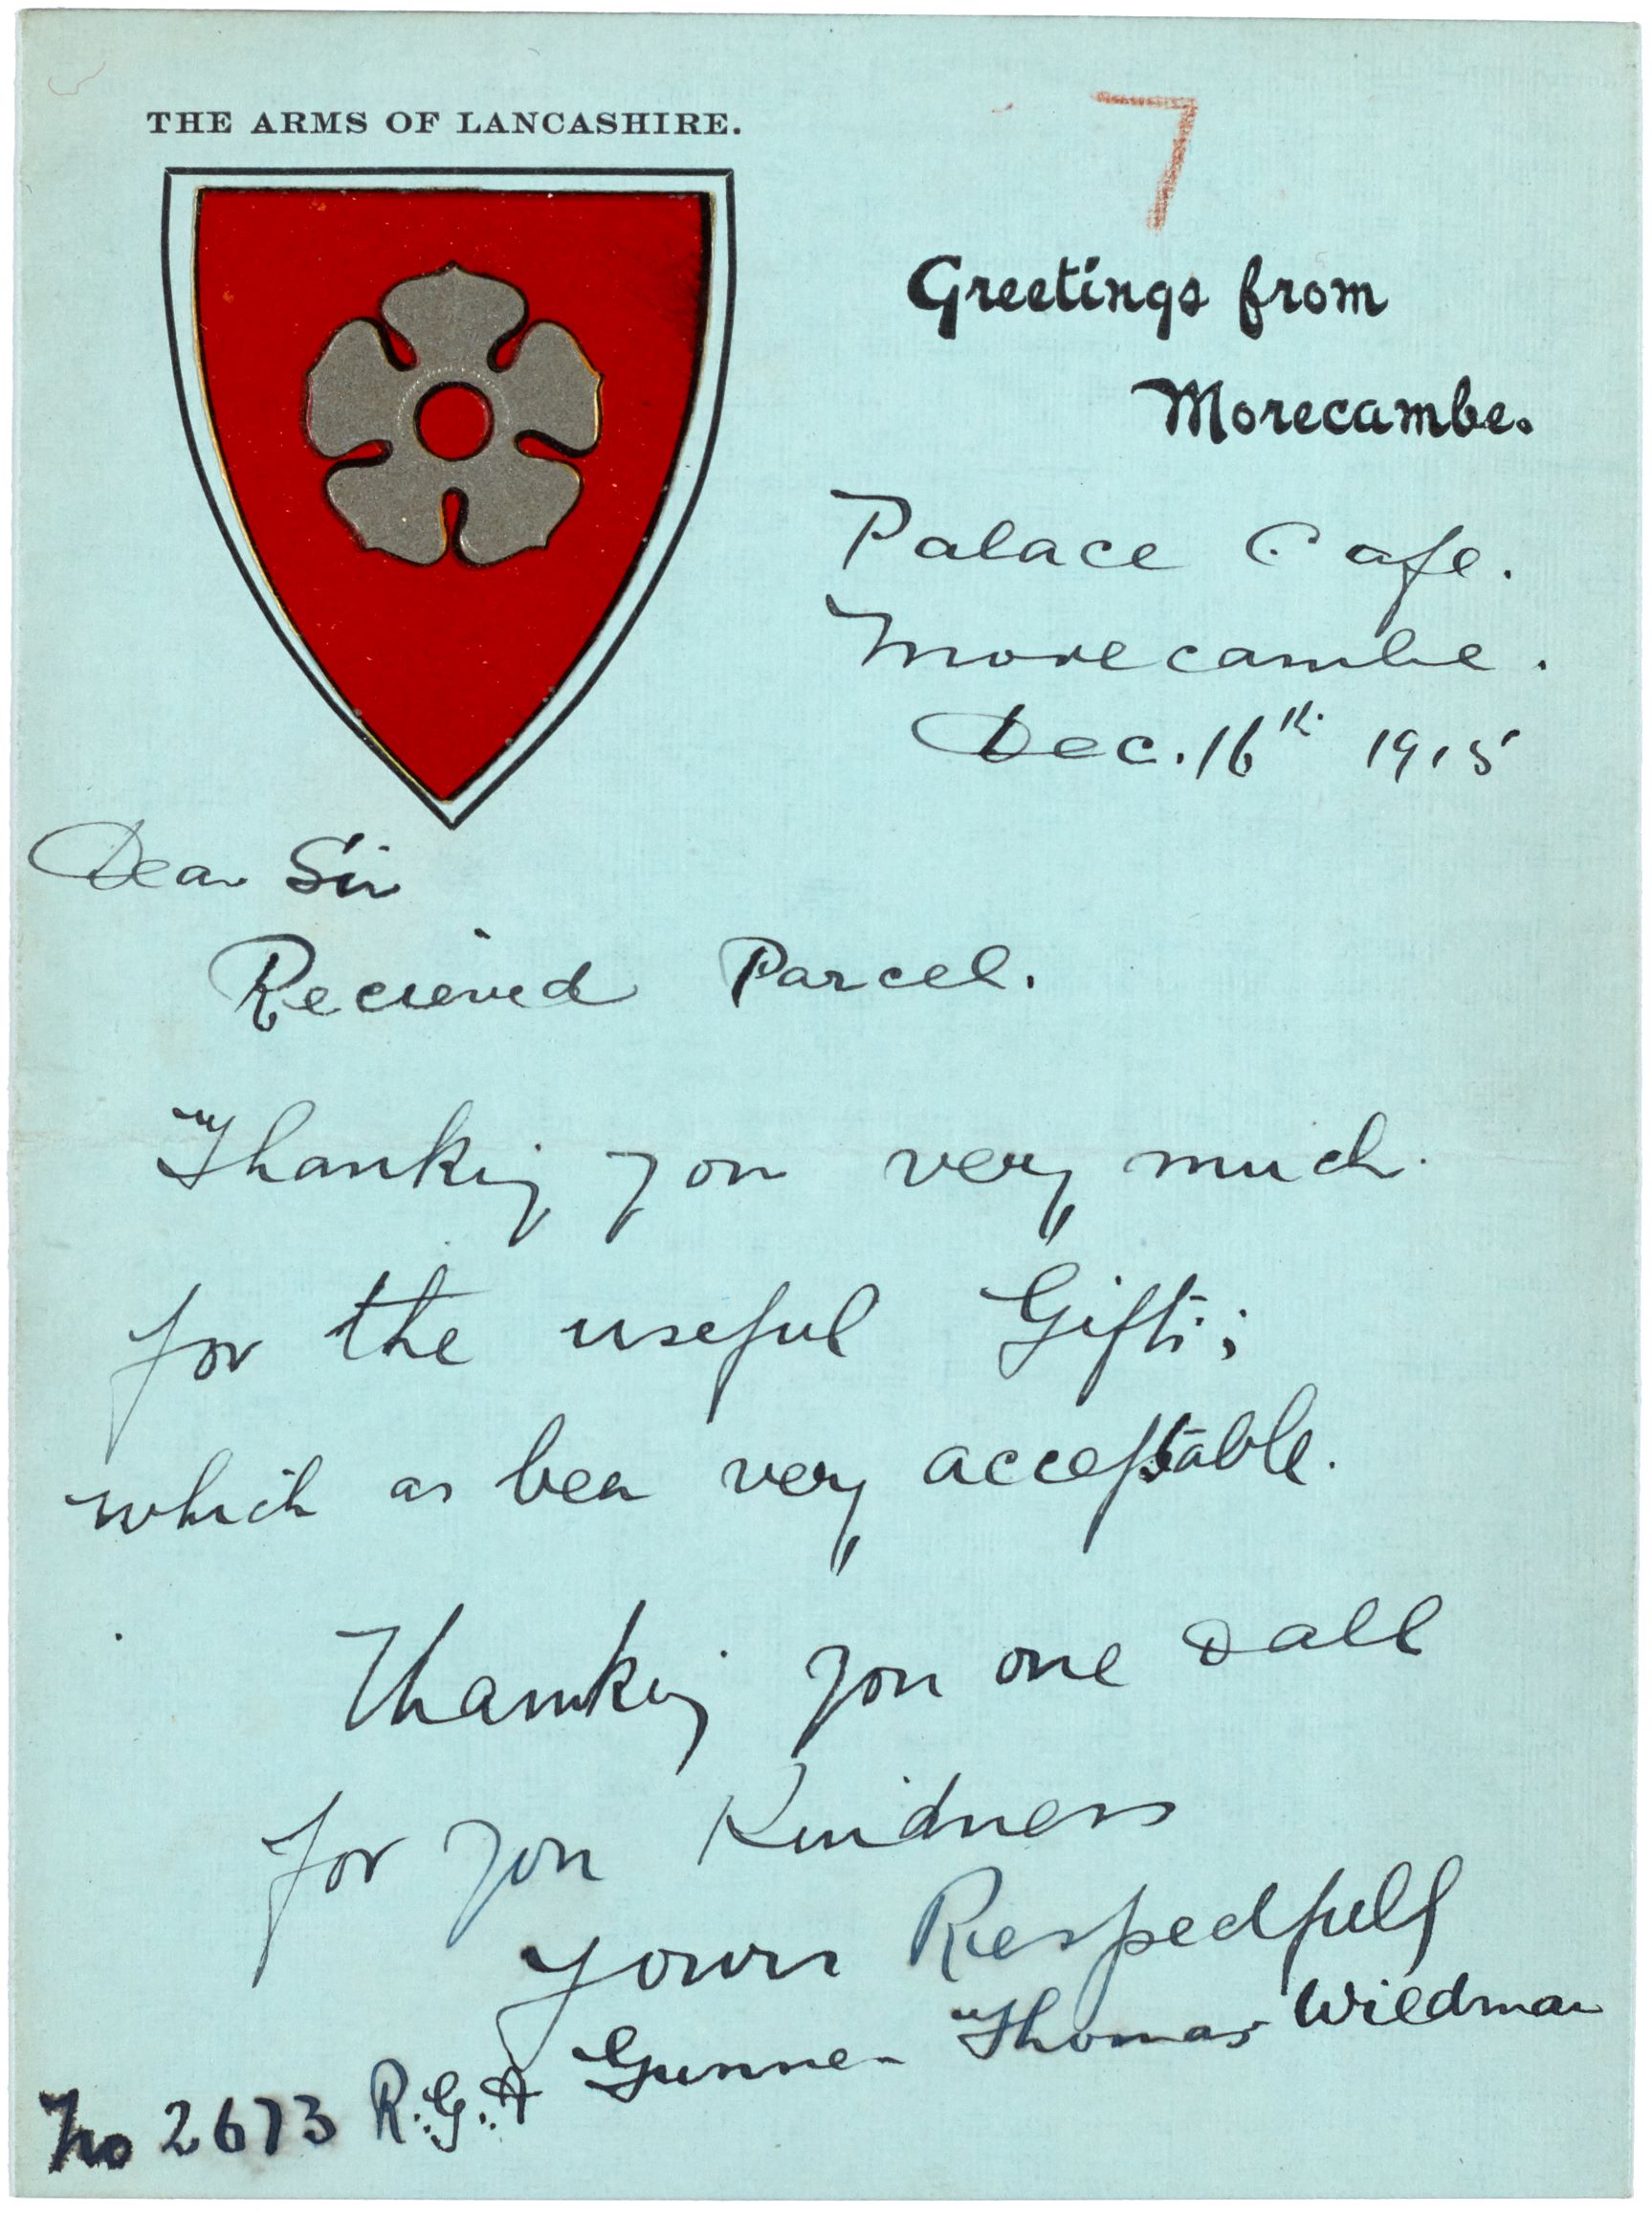 THE ARMS OF LANCASHIRE.
7
Greetings from
Morecambe.
Palace Cafe.
Morecambe.
Dec. 16th 1915
Dear Sir
Recieved Parcel.
Thanking you very much
for the useful Gifts;
which as been very acceptable.
Thanking you one & all
for you Kindness
Yours Respectfully
Gunner Thomas Wildman
No 2673 R.G.A